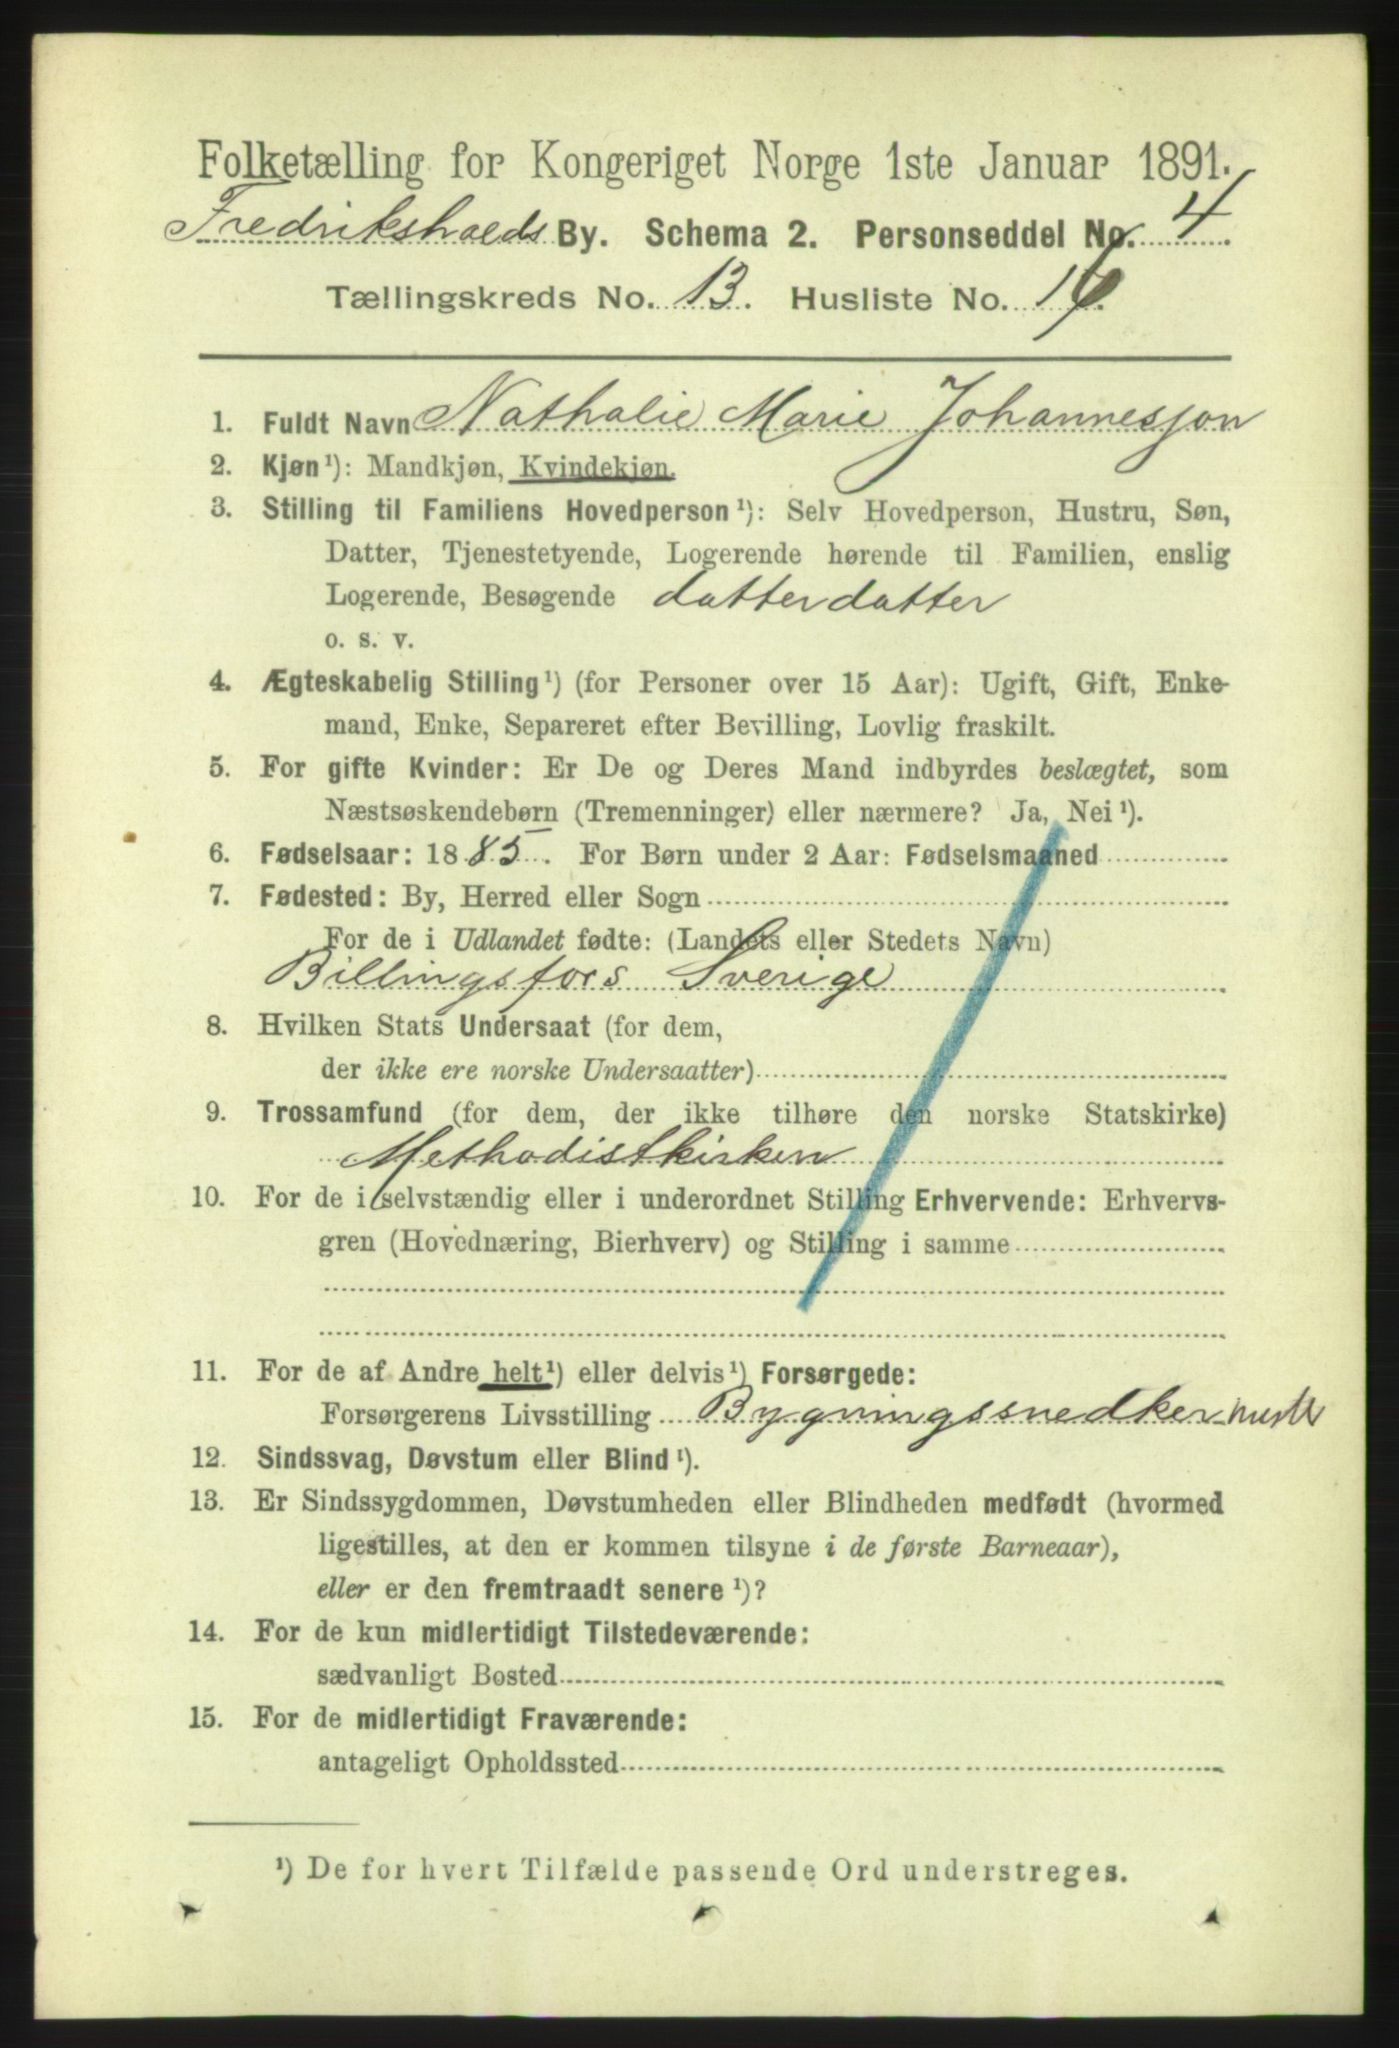 Folketælling for Kongeriget Norge 1ste Januar 1891.
Fredrikshalds By. Schema 2. Personseddel No. 4
Tællingskreds No. 13. Husliste No. 16.
1. Fuldt Navn Nathalie Marie Johannesson
2. Kjøn ¹): Mandkjøn, Kvindekjøn.
3. Stilling til Familiens Hovedperson ¹): Selv Hovedperson, Hustru, Søn,
Datter, Tjenestetyende, Logerende hørende til Familien, enslig
Logerende, Besøgende datterdatter
o. s. v.
4. Ægteskabelig Stilling ¹) (for Personer over 15 Aar): Ugift, Gift, Enke-
mand, Enke, Separeret efter Bevilling, Lovlig fraskilt.
5. For gifte Kvinder: Er De og Deres Mand indbyrdes beslægtet, som
Næstsøskendebørn (Tremenninger) eller nærmere? Ja, Nei ¹).
6. Fødselsaar: 1885. For Børn under 2 Aar: Fødselsmaaned
7. Fødested: By, Herred eller Sogn
For de i Udlandet fødte: (Landets eller Stedets Navn)
Billingsfors Sverige
8. Hvilken Stats Undersaat (for dem,
der ikke ere norske Undersaatter)
9. Trossamfund (for dem, der ikke tilhøre den norske Statskirke)
Methodistkirken
10. For de i selvstændig eller i underordnet Stilling Erhvervende: Erhvervs-
gren (Hovednæring, Bierhverv) og Stilling i samme
11. For de af Andre helt ¹) eller delvis ¹) Forsørgede:
Forsørgerens Livsstilling Bygningssnedker
12. Sindssvag, Døvstum eller Blind ¹).
13. Er Sindssygdommen, Døvstumheden eller Blindheden medfødt (hvormed
ligestilles, at den er kommen tilsyne i de første Barneaar),
eller er den fremtraadt senere ¹)?
14. For de kun midlertidigt Tilstedeværende:
sædvanligt Bosted
15. For de midlertidigt Fraværende:
antageligt Opholdssted
¹) De for hvert Tilfælde passende Ord understreges.